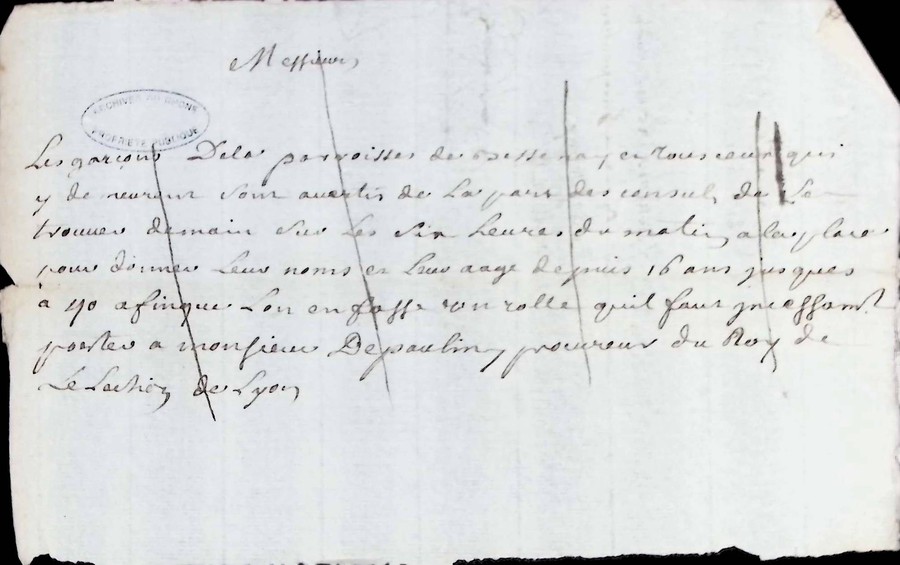 Messieurs
ARCHIVES DU RHONE
PROPRIÉTÉ PUBLIQUE
Les garçons Dela parroisses de Bessenay et Tous ceux qui
y de meurent sont avertis de La part des consuls de Se
trouver demain Sur Les Six heures du matin a la place
pour donner Leur noms et Leur aage depuis 16 ans jusques
à 40 afinque Lon en fasse un rolle quil faut incessamt
porter a monsieur Depaulin procureur du Roy de
Lelection de Lyon